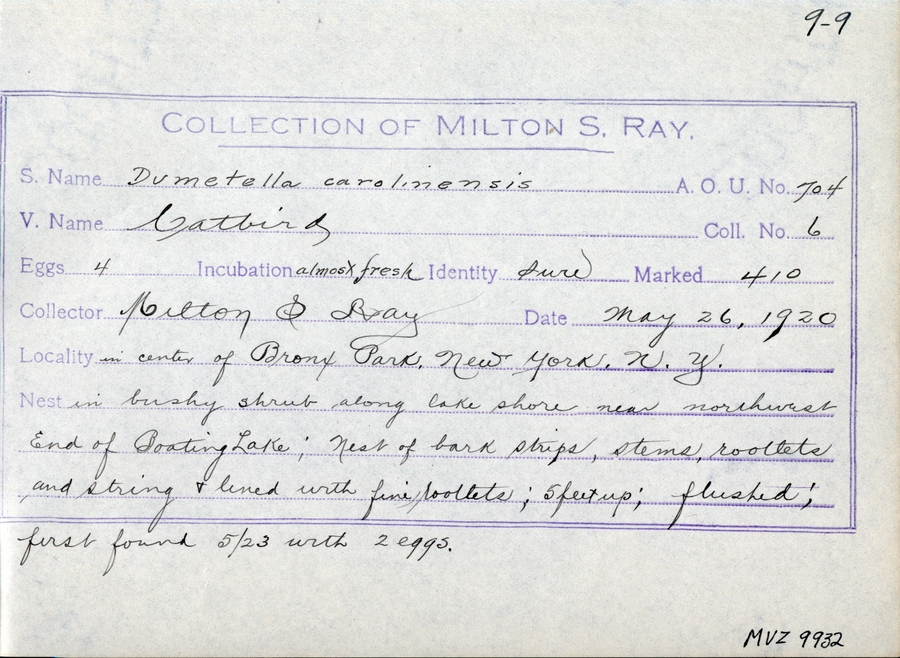 9-9
COLLECTION OF MILTON S. RAY.
S. Name Dumetella carolinensis A. O. U. No. 704
V. Name Catbird Coll. No. 6
Eggs 4 Incubation almost fresh Identity Sure Marked 4/0
Collector Milton S Ray Date May 26, 1920
Locality in center of Bronx Park, New York, N. Y.
Nest in bushy shrub along lake shore near northwest
End of Boating Lake; Nest of bark strips, stems, rootlets
and string & lined with fine rootlets; 5 feet up; flushed;
first found 5/23 with 2 eggs.
MVZ 9932